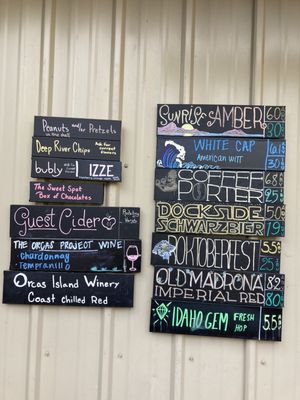 Peanuts
in the shell
and/or Pretzels
Deep River Chips
Ask for
current
flavors
bubly
IZZE
The Sweet Spot
Box of Chocolates
Guest Cider
The Orcas Project Wine
Chardonnay
Tempranillo
Orcas Island Winery
Coast chilled Red
Sunrise Amber
White Cap
American Wit
30
Coffee
Porter
6.8
25
Dockside
Schwarzbier
5.0
19
Roktoberfest
5.5
25
Old Madrona
Imperial Red
8.2
80
Idaho Gem
Fresh
Hop
5.5